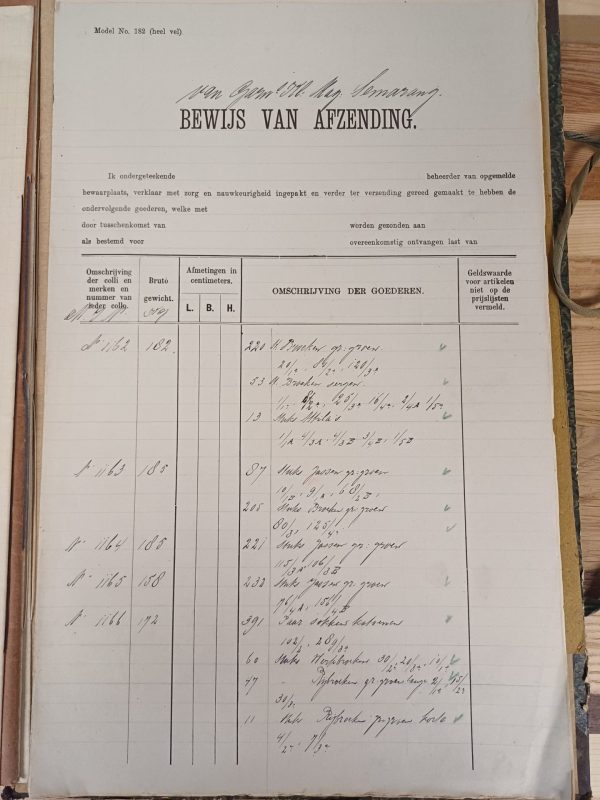 Model No. 182 (heel vel)
van Mag. Semarang.
BEWIJS VAN AFZENDING.
Ik ondergeteekende beheerder van opgemelde
bewaarplaats, verklaar met zorg en nauwkeurigheid ingepakt en verder ter verzending gereed gemaakt te hebben de
ondervolgende goederen, welke met
door tusschenkomst van worden gezonden aan
als bestemd voor overeenkomstig ontvangen last van
Omschrijving der colli en merken en nummer van ieder collo.
Bruto gewicht.
Afmetingen in centimeters.
L. B. H.
OMSCHRIJVING DER GOEDEREN.
Geldswaarde voor artikelen niet op de prijslijsten vermeld.
No 1162 182 220 St. Broeken gr: groen
20/1 120/3
53 St. Broeken serge
13 Stuks Attila's
No 1163 185 87 Stuks Jassen gr: groen
205 Stuks Broeken gr: groen
80/3 125/4
No 1164 185 221 Stuks Jassen gr: groen
No 1165 158 232 Stuks Jassen gr. groen
No 1166 172 391 Paar sokken katoenen
102/2 289/3
60 Stuks Werkbroeken 30/2 20/3 10/1
47 Rijbroeken gr. groen lange 2/1 15/2
30/3
11 Stuks Rijbroeken gr. groen korte
4/2 7/3